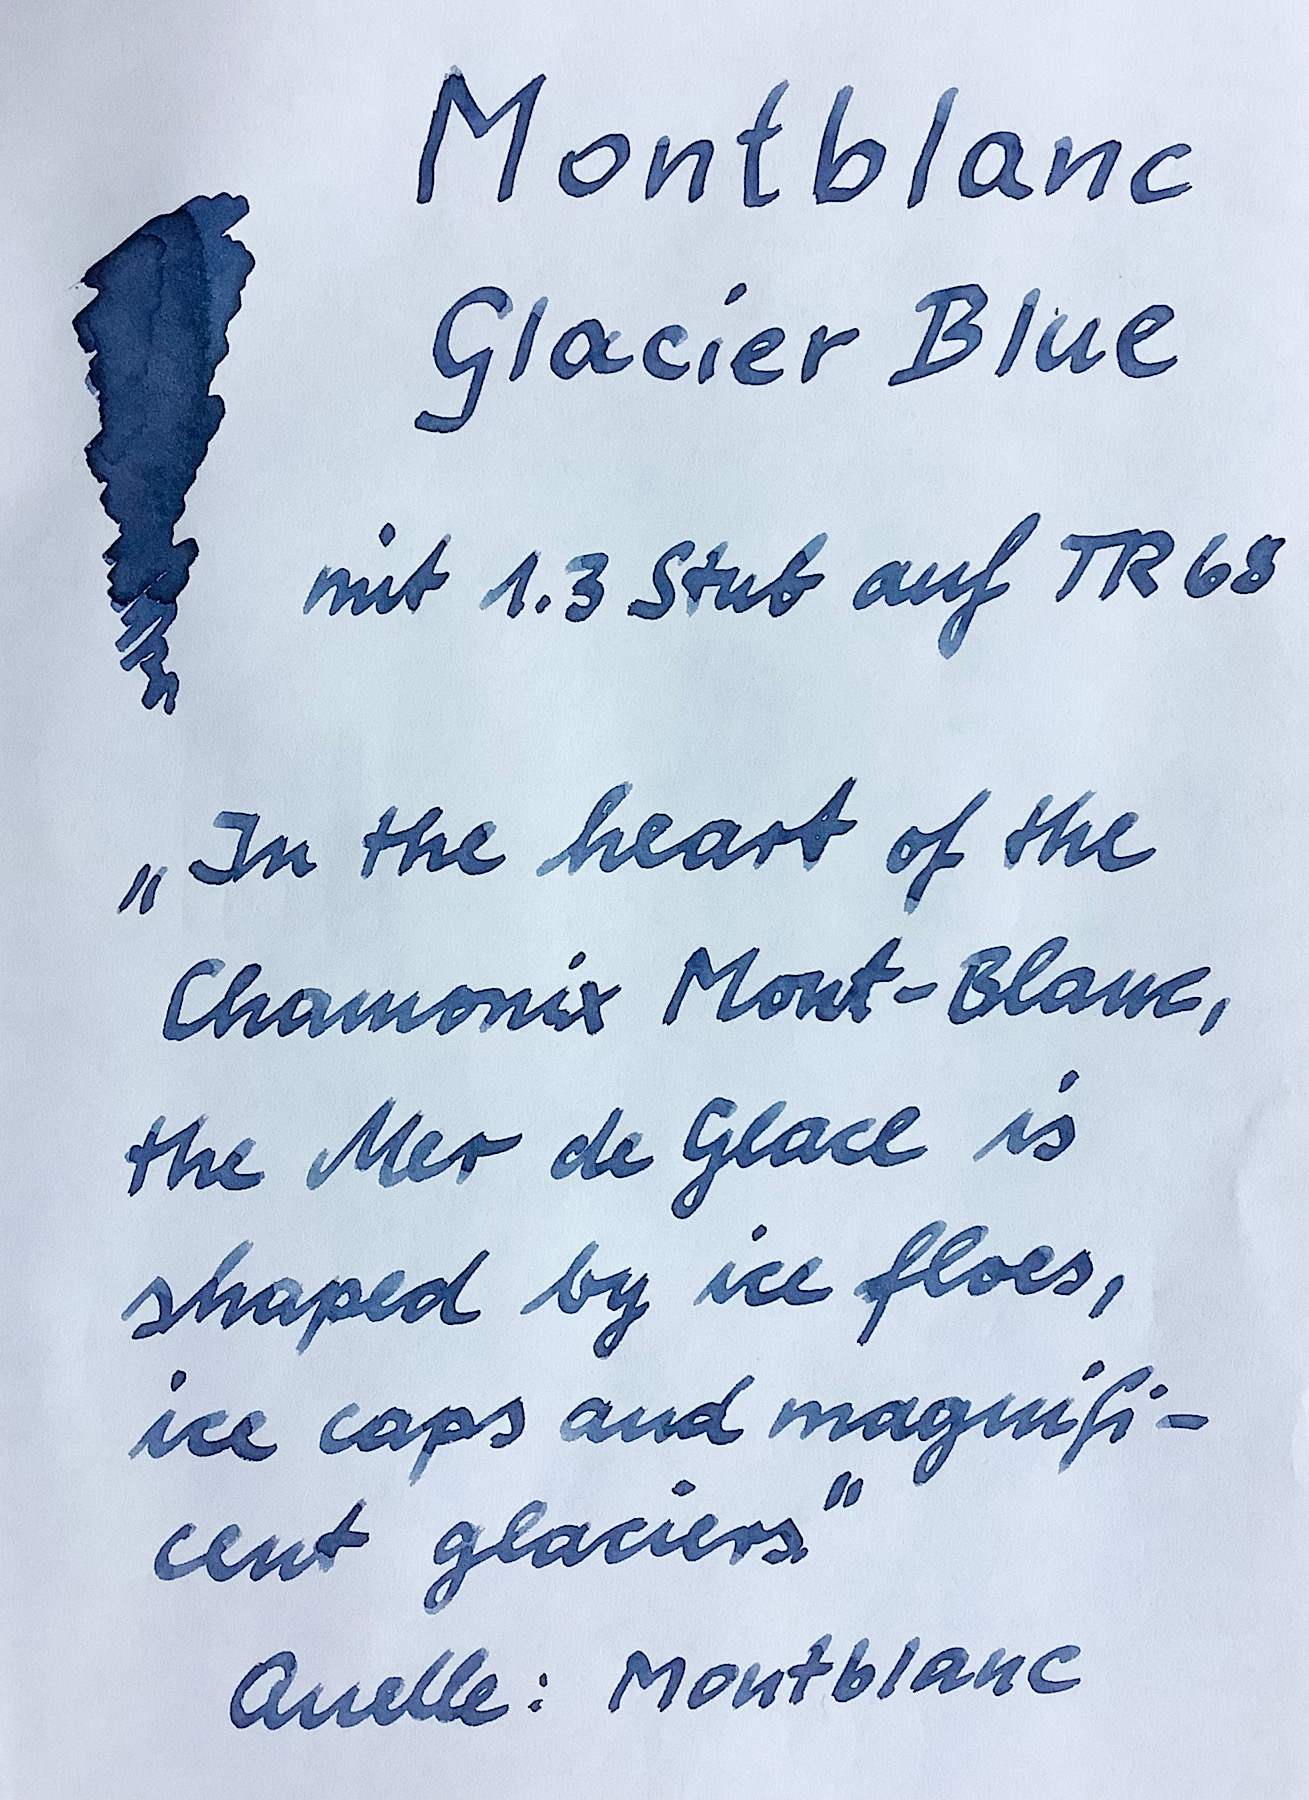 Montblanc
Glacier Blue
mit 1.3 Stub auf TR68
„In the heart of the
Chamonix Mont-Blanc,
the Mer de Glace is
shaped by ice floes,
ice caps and magnifi-
cent glaciers."
Quelle: Montblanc